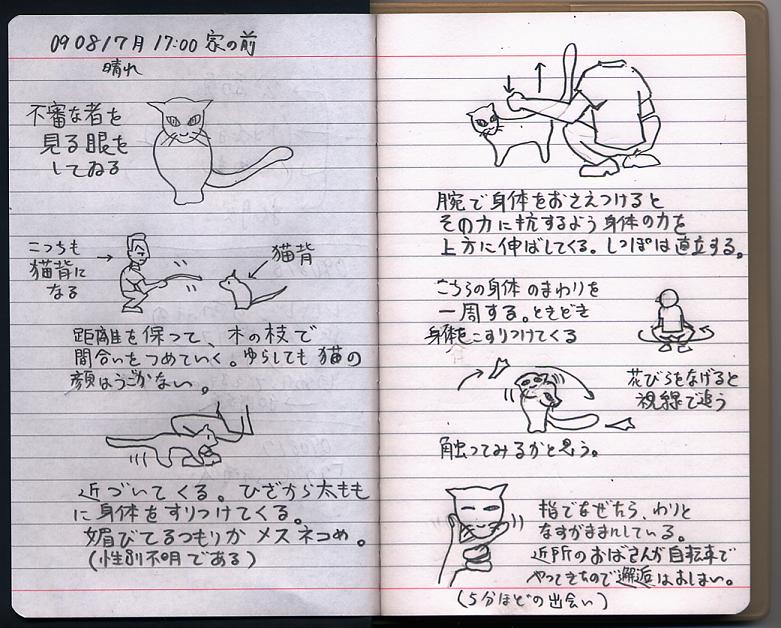 090817月 17:00 家の前
晴れ
不審な者を
見る眼を
してゐる
こっちも
猫背に
なる
猫背
距離を保って、木の枝で
間合いをつめていく。ゆらしても猫の
顔はうごかない。
近づいてくる。ひざから太もも
に身体をすりつけてくる。
媚びてるつもりか メスネコめ。
(性別不明である)
腕で身体をおさえつけると
その力に抗するよう身体の力を
上方に伸ばしてくる。しっぽは直立する。
こちらの身体のまわりを
一周する。ときどき
身体をこすりつけてくる
花びらをなげると
視線で追う
触ってみるかと思う。
指でなぜたら、わりと
なすがままにしている。
近所のおばさんが自転車で
やってきたので邂逅はおしまい。
(5分ほどの出会い)